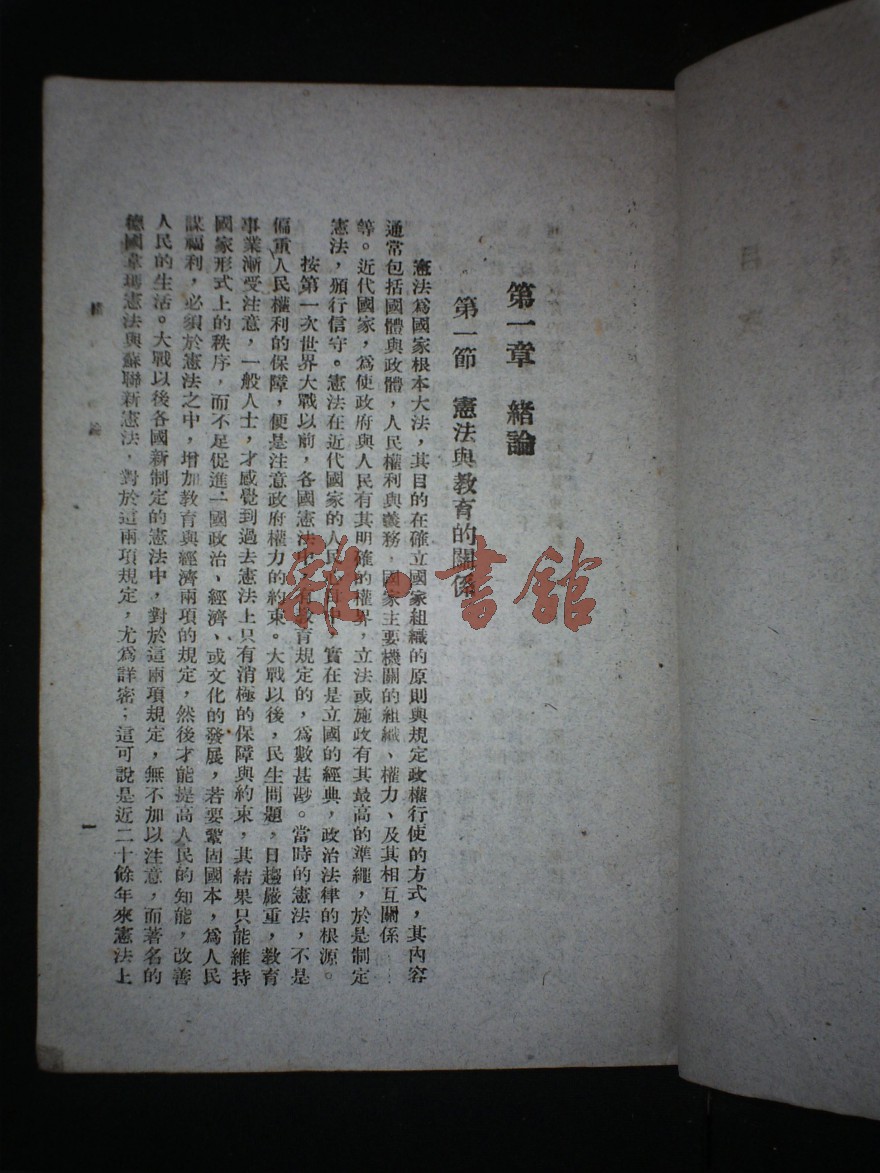 第一章 緒論
第一節 憲法與教育的關係
憲法爲國家根本大法，其目的在確立國家組織的原則與規定政權行使的方式，其內容
通常包括國體與政體，人民權利與義務，國家主要機關的組織、權力、及其相互關係……
等。近代國家，爲使政府與人民有其明確的權界，立法或施政有其最高的準繩，於是制定
憲法，頒行信守。憲法在近代國家的人民心目中，實在是立國的經典，政治法律的根源。
按第一次世界大戰以前，各國憲法中有教育規定的，爲數甚尠。當時的憲法，不是
偏重人民權利的保障，便是注意政府權力的約束。大戰以後，民生問題，日趨嚴重，教育
事業漸受注意，一般人士，才感覺到過去憲法上只有消極的保障與約束，其結果只能維持
國家形式上的秩序，而不足促進一國政治、經濟、或文化的發展，若要鞏固國本，爲人民
謀福利，必須於憲法之中，增加教育與經濟兩項的規定，然後才能提高人民的知能，改善
人民的生活。大戰以後各國新制定的憲法中，對於這兩項規定，無不加以注意，而著名的
德國韋瑪憲法與蘇聯新憲法，對於這兩項規定，尤爲詳密；這可說是近二十餘年來憲法上
緒論
一
雜·書館